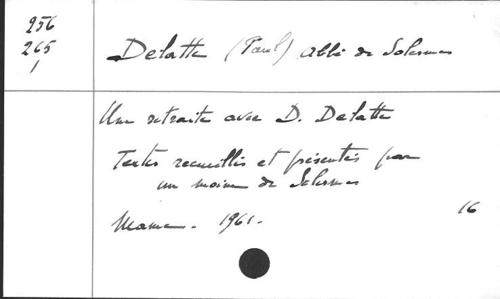 256
265
1
Delatte (Paul) Abbé de Solesmes
Une retraite avec D. Delatte
Textes recueillis et présentés par
un moine de Solesmes
Mame - 1961.
16